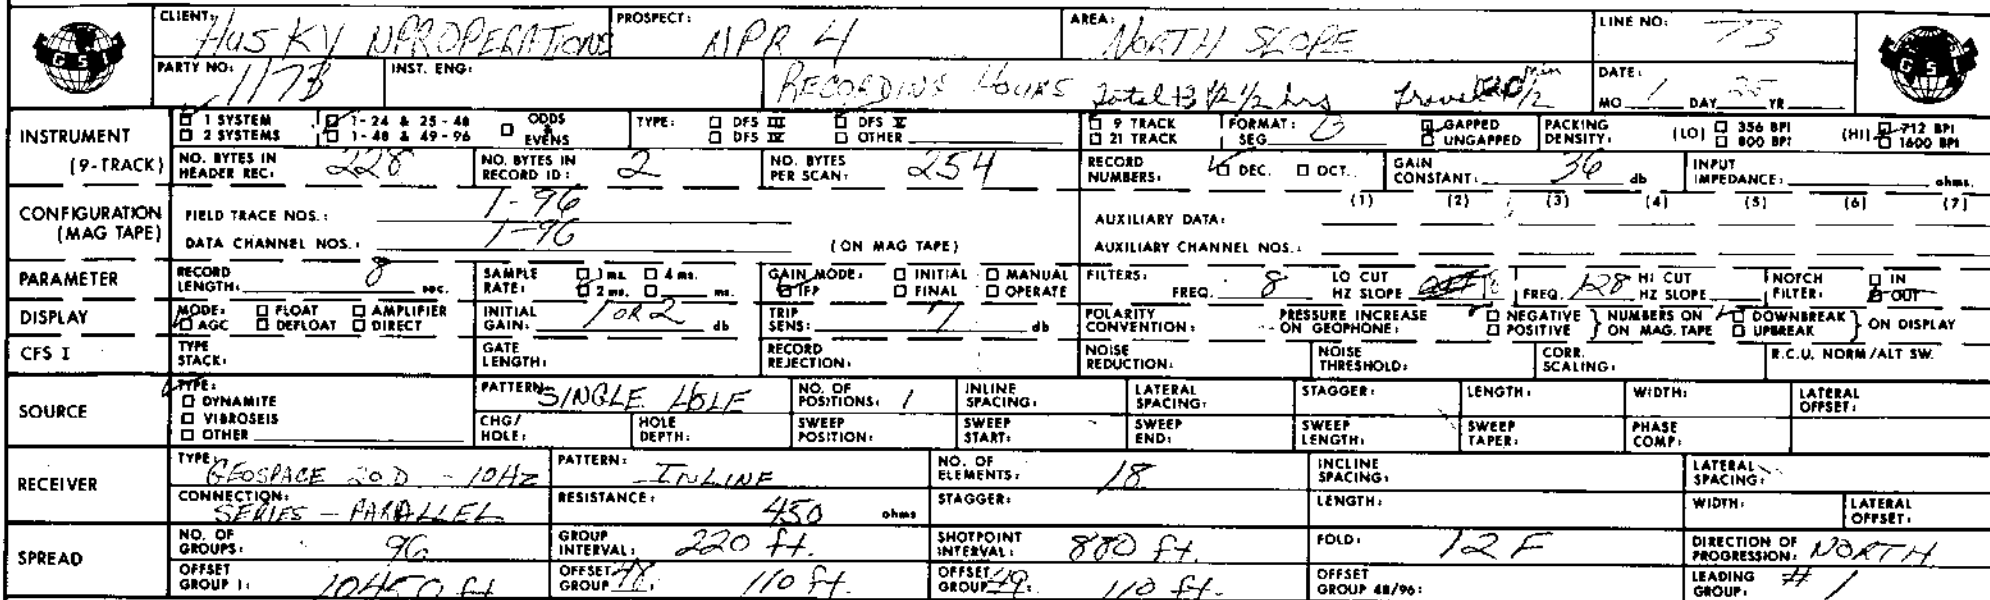 CLIENT: HUSKY NPR OPERATIONS PROSPECT: NPR 4 AREA: NORTH SLOPE LINE NO: 73
GSI
PARTY NO: 1173 INST. ENG: RECORDING HOURS Total 12 1/2 hrs Travel DATE: MO 1 DAY 25 YR
GSI
INSTRUMENT (9-TRACK)
1 SYSTEM 1-24 & 25-48 ODDS & EVENS TYPE: DFS III DFS V 9 TRACK FORMAT: SEG B GAPPED PACKING DENSITY: (LO) 356 BPI (HI) 712 BPI
2 SYSTEMS 1-48 & 49-96 DFS IV OTHER 21 TRACK UNGAPPED 800 BPI 1600 BPI
NO. BYTES IN HEADER REC: 228 NO. BYTES IN RECORD ID: 2 NO. BYTES PER SCAN: 254 RECORD NUMBERS: DEC. OCT. GAIN CONSTANT: 36 db INPUT IMPEDANCE: ohms.
CONFIGURATION (MAG TAPE)
FIELD TRACE NOS.: 1-96 AUXILIARY DATA: (1) (2) (3) (4) (5) (6) (7)
DATA CHANNEL NOS.: 1-96 (ON MAG TAPE) AUXILIARY CHANNEL NOS.:
PARAMETER RECORD LENGTH: 8 sec. SAMPLE RATE: 1 ms. 4 ms. 2 ms. ms. GAIN MODE: INITIAL MANUAL IFP FINAL OPERATE FILTERS: FREQ. 8 LO CUT HZ SLOPE FREQ. 128 HI CUT HZ SLOPE NOTCH FILTER: IN OUT
DISPLAY MODE: FLOAT AMPLIFIER AGC DEFLOAT DIRECT INITIAL GAIN: 1 OR 2 db TRIP SENS: 7 db POLARITY CONVENTION: PRESSURE INCREASE ON GEOPHONE: NEGATIVE POSITIVE NUMBERS ON MAG. TAPE DOWNBREAK UPBREAK ON DISPLAY
CFS I TYPE STACK: GATE LENGTH: RECORD REJECTION: NOISE REDUCTION: NOISE THRESHOLD: CORR. SCALING: R.C.U. NORM/ALT SW.
SOURCE TYPE: DYNAMITE VIBROSEIS OTHER PATTERN: SINGLE HOLE NO. OF POSITIONS: 1 INLINE SPACING: LATERAL SPACING: STAGGER: LENGTH: WIDTH: LATERAL OFFSET:
CHG/HOLE: HOLE DEPTH: SWEEP POSITION: SWEEP START: SWEEP END: SWEEP LENGTH: SWEEP TAPER: PHASE COMP:
RECEIVER TYPE: GEOSPACE 20D - 10Hz PATTERN: INLINE NO. OF ELEMENTS: 18 INCLINE SPACING: LATERAL SPACING:
CONNECTION: SERIES - PARALLEL RESISTANCE: 450 ohms STAGGER: LENGTH: WIDTH: LATERAL OFFSET:
SPREAD NO. OF GROUPS: 96 GROUP INTERVAL: 220 ft. SHOTPOINT INTERVAL: 880 ft. FOLD: 12 F DIRECTION OF PROGRESSION: NORTH
OFFSET GROUP 1: 10450 ft OFFSET GROUP 48: 110 ft. OFFSET GROUP 49: 110 ft. OFFSET GROUP 48/96: LEADING GROUP: # 1